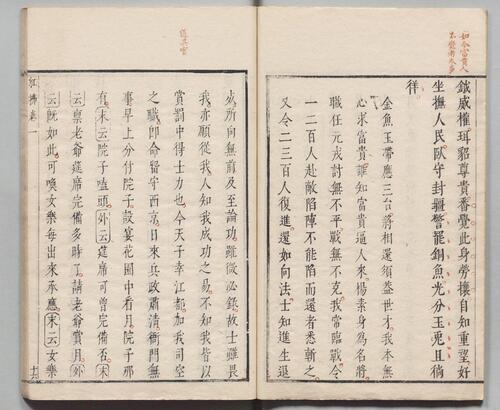 如今富貴人
不覺者太多
鉞威權珥貂尊貴番覺此身勞攘自知重望好
坐撫人民臥守封疆警罷銅魚光分玉兎且徜
徉
金魚玉帶應三台將相還須蓋世才我本無
心求富貴誰知富貴逼人來楊素身為名將
職任元戎討無不平戰無不克我常臨戰令
一二百人赴敵陷陣不能陷而還者悉斬之
又令二三百人復進還如向法士知進生退
必所向無前及至論功雖微必錄故士雖畏
我亦願從我人知我成功之易不知我皆以
賞罰中得士力也今天子幸江都加我司空
之職即命留守西京日來兵政肅清衙門無
事早上分付院子設宴花園中看月院子那
有末云院子嗑頭外云筵席可曾完備否末
云稟老爺筵席完備多時了請老爺賞月外
云旣如此可喚女樂每出來承應末云女樂
紅拂卷一